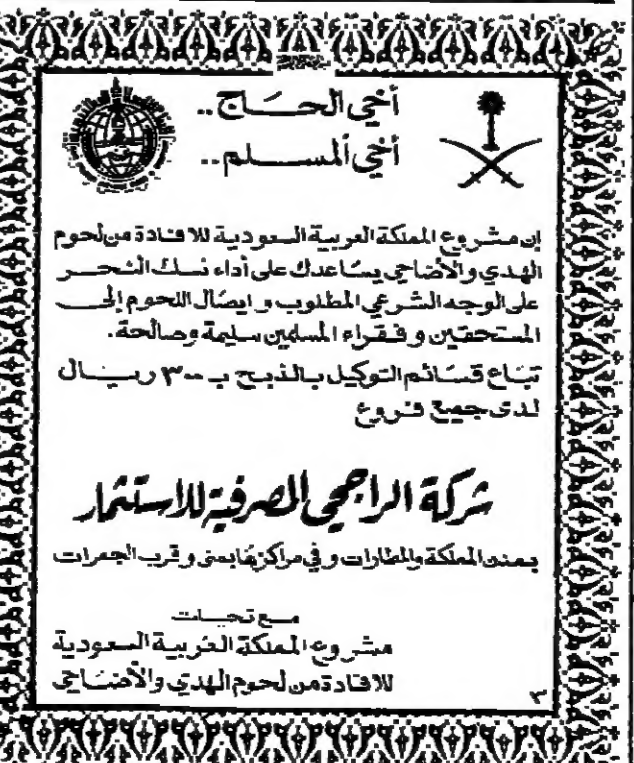 أخي الحـــاج ..
أخي ألمســـلم ..
إن مشروع المملكة العربية السعودية للافادة من لحوم
الهدي والأضاحي يساعدك على أداء نسك النحر
على الوجه الشرعي المطلوب و ايصال اللحوم إلى
المستحقين و فقراء المسلمين سليمة وصالحة.
تباع قسائم التوكيل بالذبح بـ ٣٠٠ ريال
لدى جميع فروع
شركة الراجحي المصرفية للاستثمار
بمدن المملكة والمطارات و في مراكزها بمنى و قرب الجمرات
مع تحيات
مشروع المملكة العربية السعودية
للافادة من لحوم الهدي والأضاحي
٣